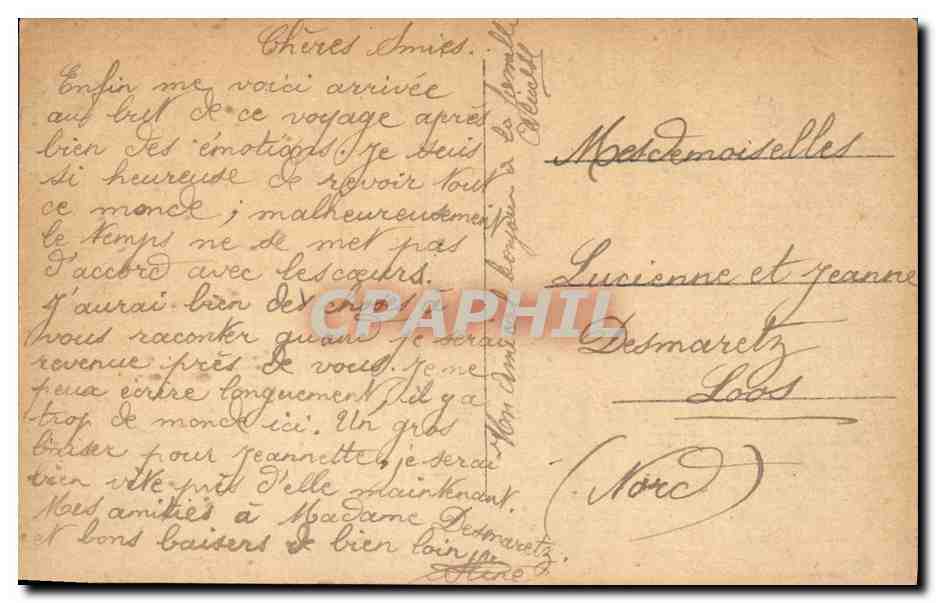 Chères Amies.
Enfin me voici arrivée
au but de ce voyage après
bien des émotions. Je suis
si heureuse de revoir tout
ce monde ; malheureusement
le temps ne se met pas
d'accord avec les cœurs.
J'aurai bien des choses à
vous raconter quand je serai
revenue près de vous. Je ne
peux écrire longuement, il y a
trop de monde ici. Un gros
baiser pour Jeannette, je serai
bien vite près d'elle maintenant.
Mes amitiés à Madame Desmaretz.
et bons baisers de bien loin
bonjour à la famille
Mesdemoiselles
Lucienne et Jeanne
Desmaretz
Loos
(Nord)
CPAPHIL